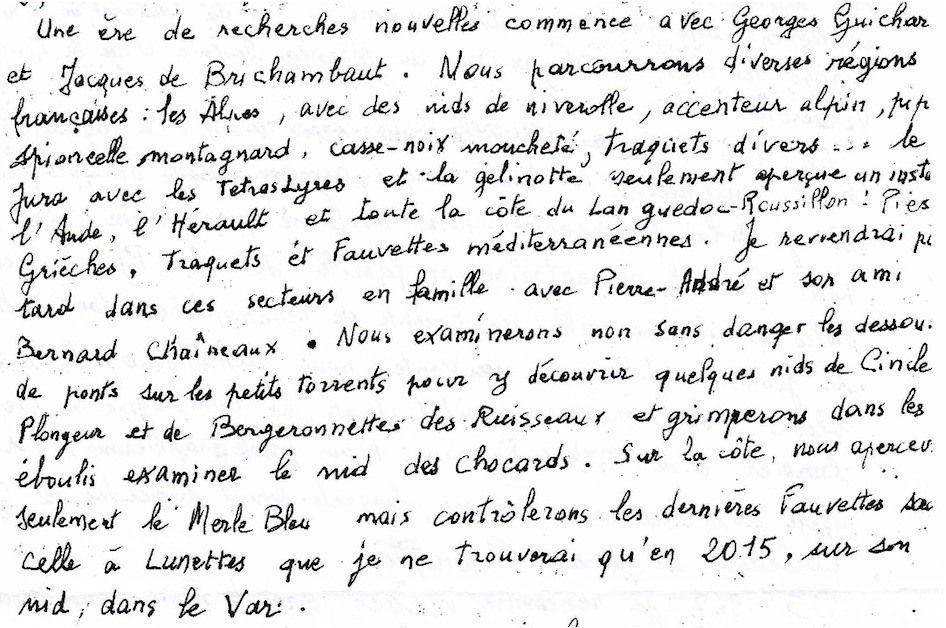 Une ère de recherches nouvelles commence avec Georges Guichar
et Jacques de Brichambaut. Nous parcourrons diverses régions
françaises : les Alpes, avec des nids de niverolle, accenteur alpin, pip
spioncelle montagnard, casse-noix moucheté, traquets divers ... le
Jura avec les Tetras Lyres et la gélinotte seulement aperçue un insta
l'Aude, l'Hérault et toute la côte du Languedoc-Roussillon : Pies
Grièches, Traquets et Fauvettes méditerranéennes. Je reviendrai pl
tard dans ces secteurs en famille avec Pierre-André et son ami
Bernard Chaîneaux. Nous examinerons non sans danger les dessou
de ponts sur les petits torrents pour y découvrir quelques nids de Cincle
Plongeur et de Bergeronnettes des Ruisseaux et grimperons dans les
éboulis examiner le nid des Chocards. Sur la côte, nous apercev
seulement le Merle Bleu mais contrôlerons les dernières Fauvettes sau
celle à Lunettes que je ne trouverai qu'en 2015, sur son
nid, dans le Var.